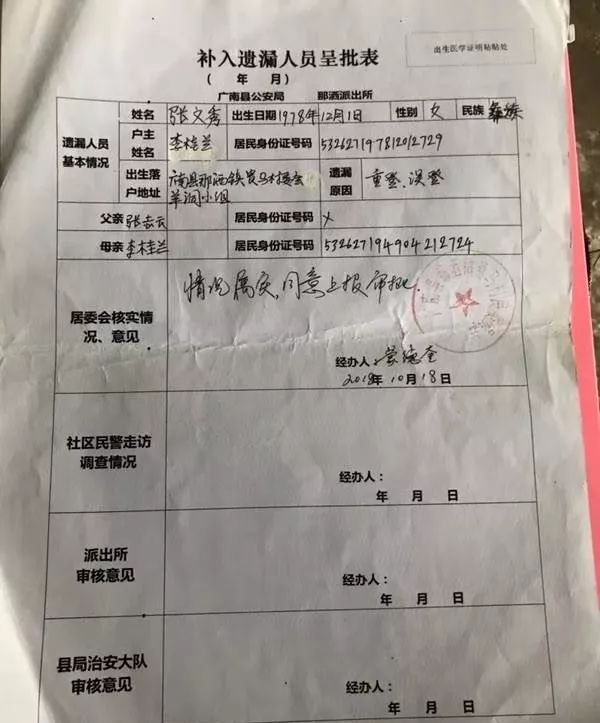 补入遗漏人员呈批表
出生医学证明粘贴处
（ 年 月）
广南县公安局 那洒派出所
遗漏人员基本情况
姓名 张文秀 出生日期 1978年12月1日 性别 女 民族 彝族
户主姓名 李桂兰 居民身份证号码 532627197812012729
出生落户地址 广南县那洒镇贵马村委会羊洞小组 遗漏原因 重登、误登
父亲 居民身份证号码 X
母亲 李桂兰 居民身份证号码 532627194904212724
居委会核实情况、意见
情况属实，同意上报审批.
经办人：
2018年10月18日
社区民警走访调查情况
经办人：
年 月 日
派出所审核意见
经办人：
年 月 日
县局治安大队审核意见
经办人：
年 月 日